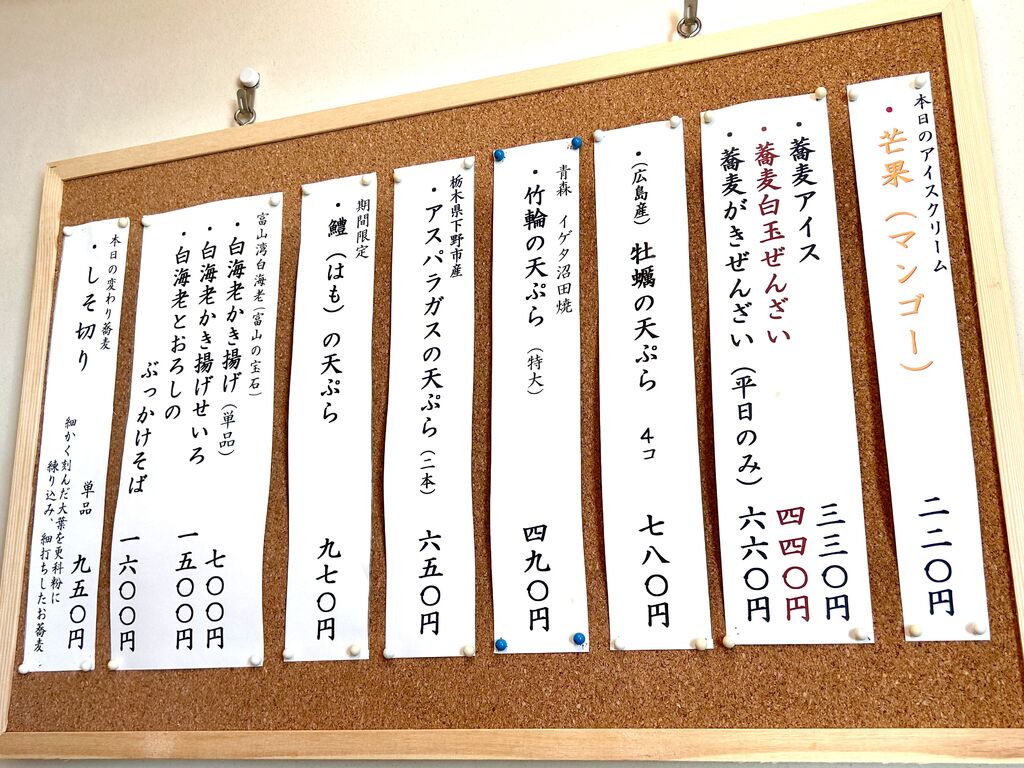 本日のアイスクリーム
・芒果（マンゴー）
二二〇円
・蕎麦アイス
三三〇円
・蕎麦白玉ぜんざい
四四〇円
・蕎麦がきぜんざい（平日のみ）
六六〇円
・（広島産）牡蠣の天ぷら 4コ
七八〇円
青森 イゲタ沼田焼
・竹輪の天ぷら（特大）
四九〇円
栃木県下野市産
・アスパラガスの天ぷら（二本）
六五〇円
期間限定
・鱧（はも）の天ぷら
九七〇円
富山湾白海老（富山の宝石）
・白海老かき揚げ（単品）
七〇〇円
・白海老かき揚げせいろ
一五〇〇円
・白海老とおろしの
ぶっかけそば
一六〇〇円
本日の変わり蕎麦
・しそ切り
単品 九五〇円
細かく刻んだ大葉を更科粉に
練り込み、細打ちしたお蕎麦